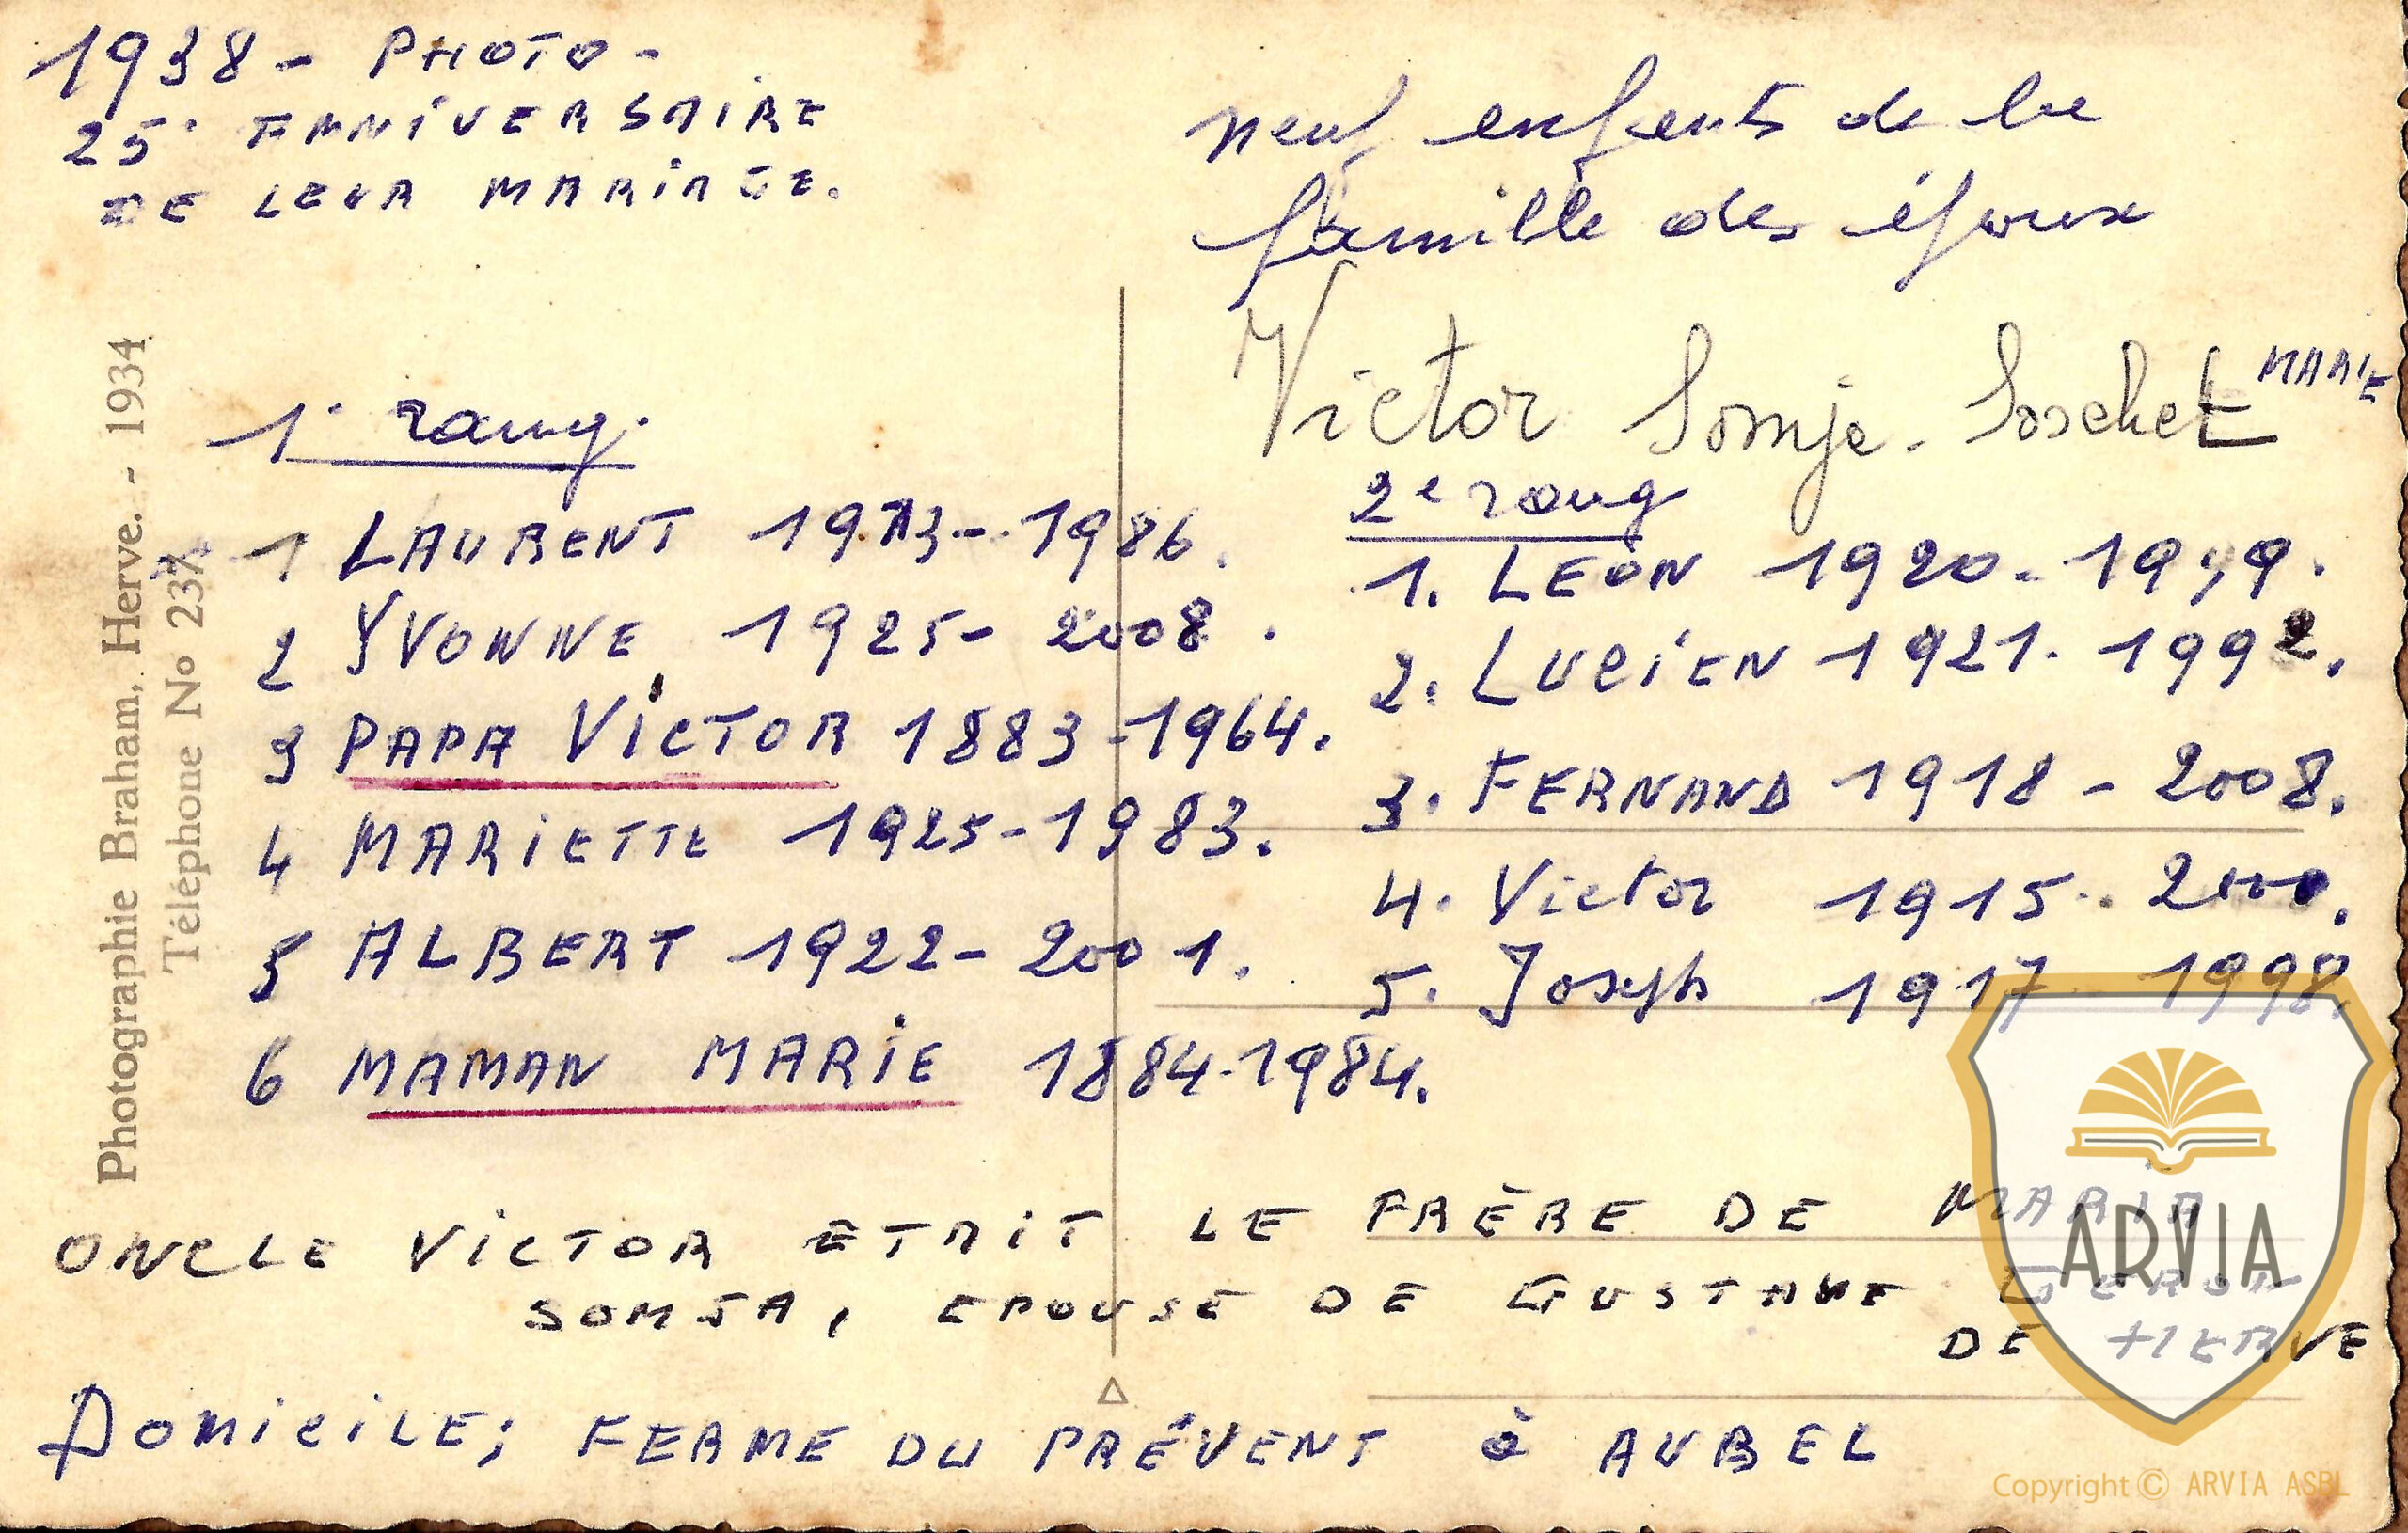 1938 - PHOTO -
25e ANNIVERSAIRE
DE LEUR MARIAGE.
neuf enfants de la
famille des époux
Victor Somja - Loschet MARIE
1e rang.
1 LAURENT 1913 - 1986.
2 YVONNE 1925 - 2008.
3 PAPA VICTOR 1883 - 1964.
4 MARIETTE 1925 - 1983.
5 ALBERT 1922 - 2001.
6 MAMAN MARIE 1884 - 1984.
2e rang
1. LEON 1920 - 1999.
2. LUCIEN 1921 - 1992.
3. FERNAND 1918 - 2008.
4. Victor 1915 - 2000.
5. Joseph 1917 1998.
ONCLE VICTOR ETAIT LE FRÈRE DE MARIA
SOMJA, EPOUSE DE GUSTAVE
DE HERVE
Domicile; FERME DU PRÉVENT à AUBEL
Photographie Braham, Herve. - 1934
Téléphone No 237
ARVIA
Copyright © ARVIA ASBL